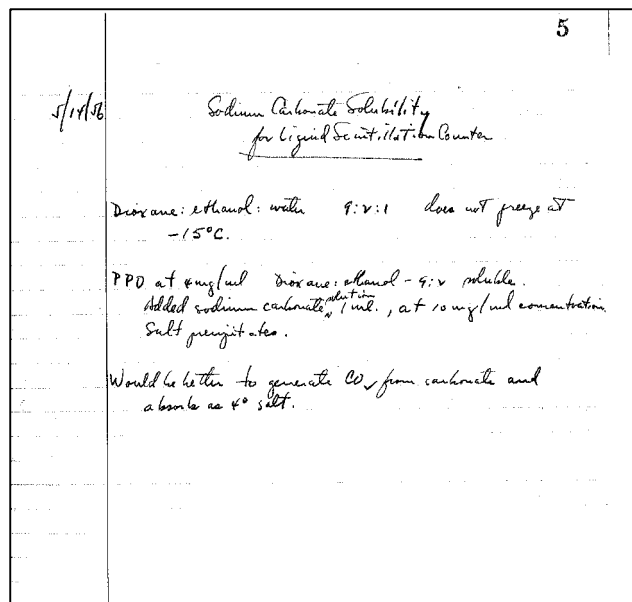 5
5/14/56
Sodium Carbonate Solubility
for Liquid Scintillation Counter
Dioxane: ethanol: water 9:2:1 does not freeze at
-15°C.
PPO at 4mg/ml Dioxane: ethanol - 9:2 soluble.
Added sodium carbonate solution 1 ml., at 10 mg/ml concentration.
Salt precipitates.
Would be better to generate CO2 from carbonate and
absorb as 4° salt.